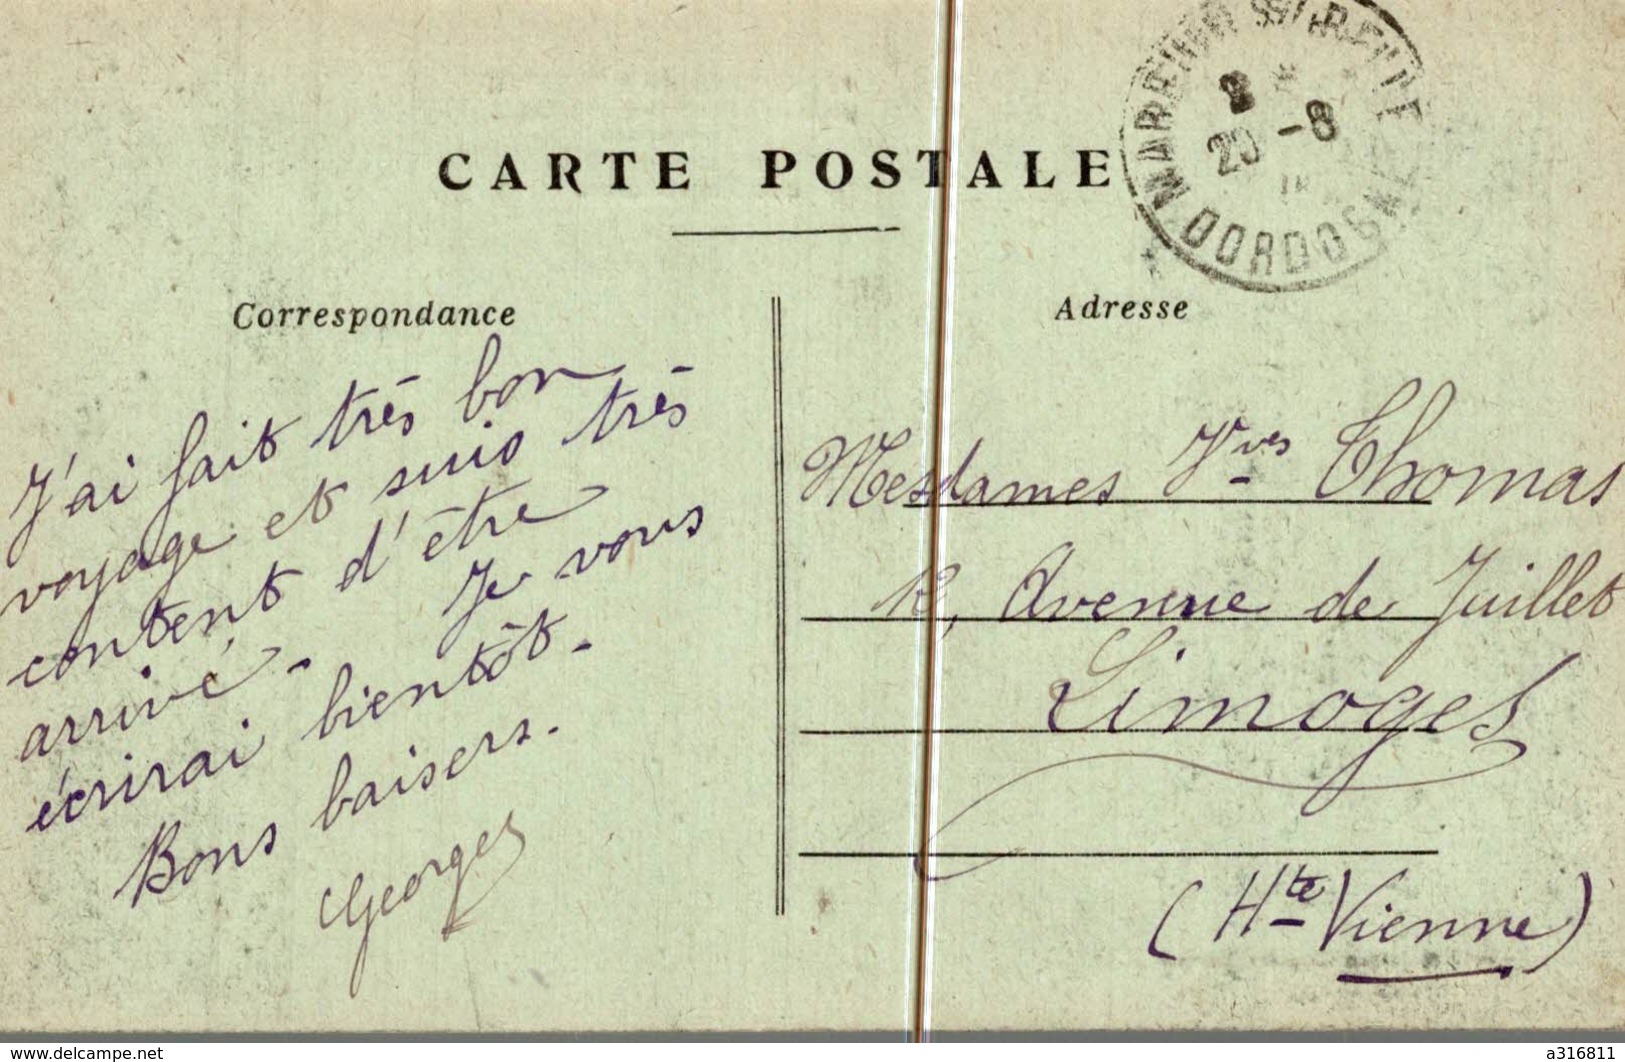 CARTE POSTALE
Correspondance
J'ai fait très bon
voyage et suis très
content d'être
arrivé. Je vous
écrirai bientôt.
Bons baisers.
Georges
Adresse
Mesdames Vves Thomas
12, Avenue de Juillet
Limoges
(Hte Vienne)
20 -8
DORDOGNE
www.delcampe.net
a316811